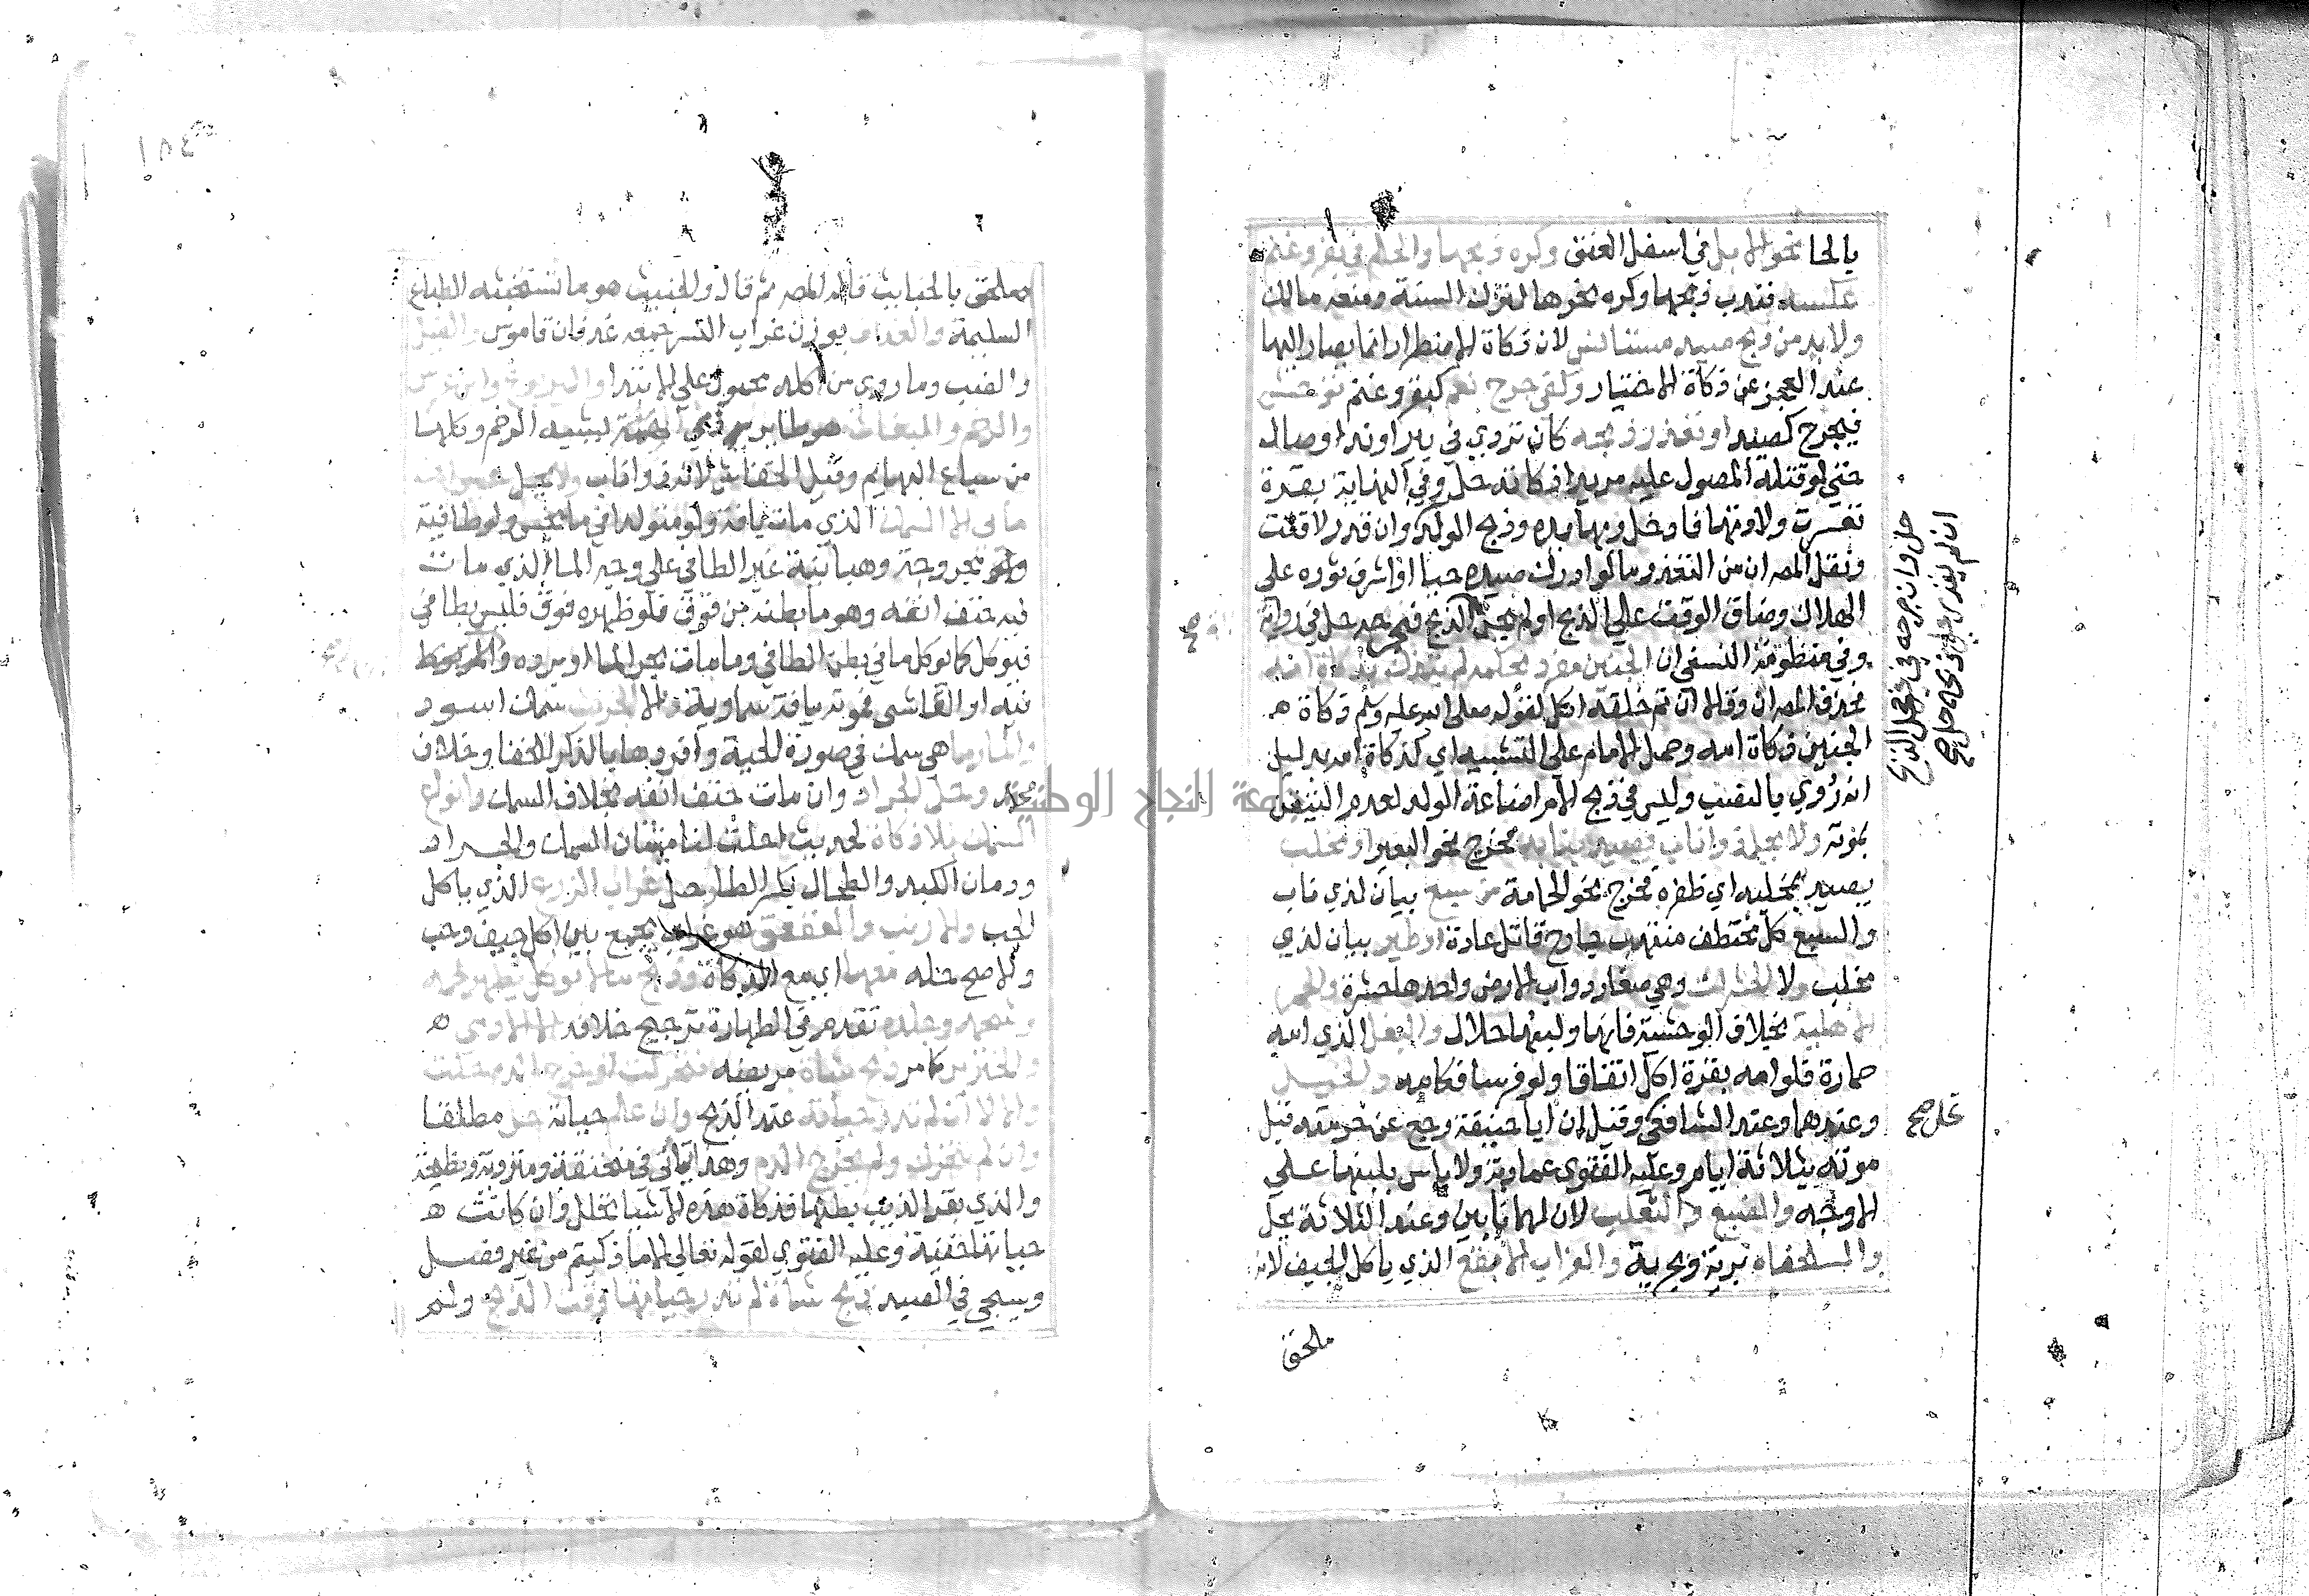 بالحا نحو الابل في اسفل العنق وكره ذبحها والحكم في بقر وغنم
عكسه فندب ذبحها وكره نحرها لترك السنة ومنعه مالك
ولا بد من ذبح صيد مستانس لان ذكاة الاضطرار انما يصار اليها
عند العجز عن ذكاة الاختيار وكفى جرح نعم كبقر وغنم توحش
فيجرح كصيد او تعذر ذبحه كان تردي في بير او ند او صال
حتى لو قتله المصول عليه مريدا ذكاته حل وفي النهاية بقرة
تعسرت ولادتها فادخل ربها يده وذبح الولد حل وان قدر لا قلت
ونقل المصر ان من التعذر ما لو ادرك صيده حيا او اشرف ثوره على
الهلاك وضاق الوقت على الذبح او لم يجد الة الذبح فجرحه حل في رواية
وفي منظومة النسفي ان الجنين مفرد بحكمه لم يتذك بذكاة امه
فحذف المصر ان وقالا ان تم خلقه اكل لقوله صلى الله عليه وسلم ذكاة ه
الجنين ذكاة امه وحمل الامام على التشبيه اي كذكاة امه بدليل
انه روي بالنصب وليس في ذبح الام اضاعة الولد لعدم التيقن
بموته ولا يحل ذو ناب يصيد بنابه فخرج نحو البعير او مخلب
يصيد بمخلبه اي ظفره فخرج نحو الحمامة من سبع بيان لذي ناب
والسبع كل مختطف منتهب جارح قاتل عادة او طير بيان لذي
مخلب ولا الحشرات وهي صغار دواب الارض واحدها حشرة والحمر
الاهلية بخلاف الوحشية فانها ولبنها حلال والبغل الذي امه
حمارة فلو امه بقرة اكل اتفاقا ولو فرسا فكامه والخيل
وعندهما وعند الشافعي وقيل ان ابا حنيفة رجع عن حرمته قبل
موته بثلاثة ايام وعليه الفتوى عمادية ولا باس بلبنها على
الاوجه والضبع والثعلب لان لهما نابين وعند الثلاثة يحل
والسلحفاه برية وبحرية والغراب الابقع الذي ياكل الجيف لانه
ملحق
حل وان جرحه في غير محل الذبح
ان لم يقدر على ذبحه حل صح
تحل صح
ملحق بالخبايث قاله المصر ثم قال والخبيث هو ما تستخبثه الطباع
السليمة والغداف بوزن غراب النسر جمعه غدفان قاموس والفيل
والضب وما روي من اكله محمول على الابتدا واليربوع وابن عرس
والرخم والبغاث هو طاير دني الهمة يشبه الرخم وكلها
من سباع البهايم وقيل الخفاش لانه ذو ناب ولا يحل حيوان
مائي الا السمك الذي مات بافة ولو متولدا في ما نجس ولو طافية
ولو مجروحة وهبانية غير الطافي على وجه الما الذي مات
فيه حتف انفه وهو ما بطنه من فوق فلو ظهره فوق فليس بطافي
فيوكل كما يوكل ما في بطن الطافي وما مات بحر الما او برده والمربوط
فيه او القاشي فموته بافة سماوية والا الجريث سمك اسود
والمارماهي سمك في صورة الحية وافردهما بالذكر للخفا وخلاف
محمد وحل الجراد وان مات حتف انفه بخلاف السمك وانواع
السمك بلا ذكاة لحديث احلت لنا ميتتان السمك والجراد
ودمان الكبد والطحال بكسر الطا وحل غراب الزرع الذي ياكل
الحب والارنب والعقعق هو غراب يجمع بين اكل جيف وحب
والاصح حله معها اي مع الذكاة وذبح ما لا يوكل يطهر لحمه
وشحمه وجلده تقدم في الطهارة ترجيح خلافه الا الادمي ه
والخنزير كما مر ذبح شاة مريضة فتحركت او خرج الدم حلت
والا لا ان لم تدر حياته عند الذبح وان علم حياته حل مطلقا
وان لم تتحرك ولم يخرج الدم وهذا ياتي في منخنقة ومتردية ونطيحة
والذي بقر الذيب بطنها فذكاة هذه الاشيا تحلل وان كانت ه
حياتها خفيفة وعليه الفتوي لقوله تعالى الا ما ذكيتم من غير فصل
وسيجي في الصيد ذبح شاة لم تدر حياتها وقت الذبح ولم
جامعة النجاح الوطنية